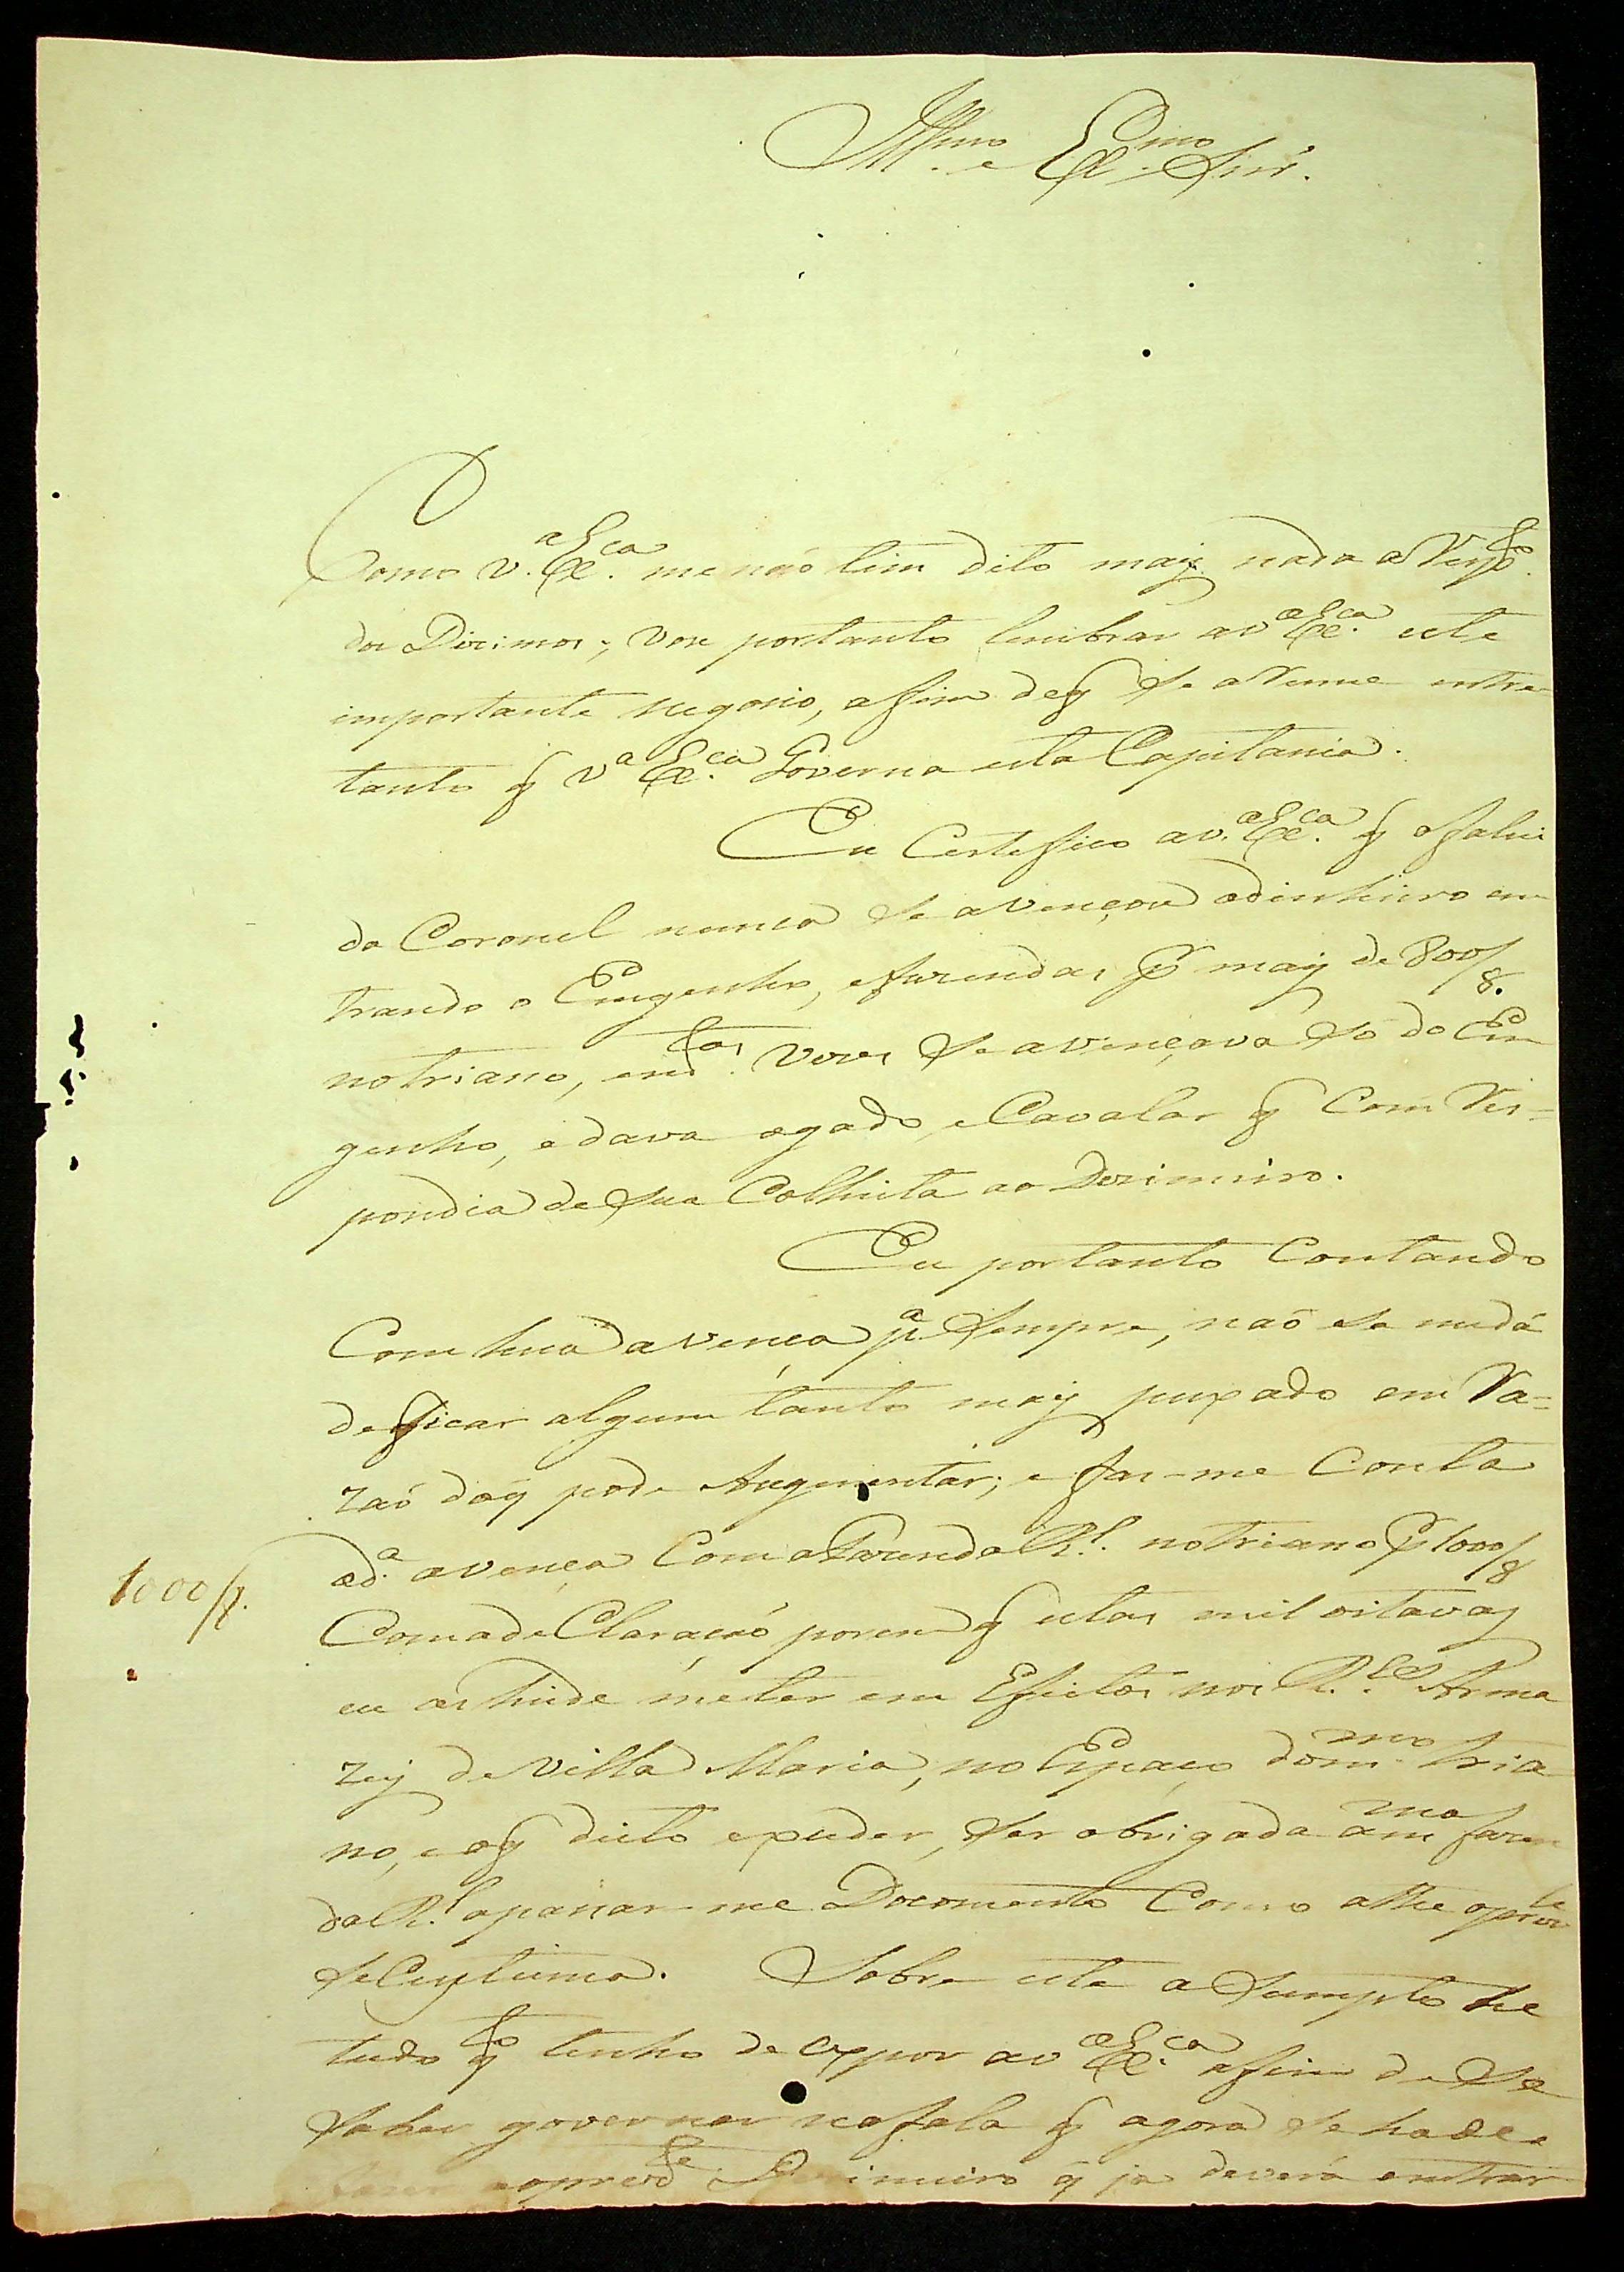 Ill.mo e Ex.mo Snr.
Como V.a Ex.ca me não tem dito mais nada a Resp.o
dos Dizimos; vou portanto lembrar a V.a Ex.ca este
importante negocio, afim de q̃ se arume entre
tanto q̃ V.a Ex.ca Governa esta Capitania.
Eu Certefico a V.a Ex.ca q̃ o faleci
do Coronel nunca se avençou a dinheiro en
trando o Engenho, e fazendas p.r mais de 800/8.as
no triano, e m.tas vezes se avençava só do En
genho, e dava o gado, e Cavalar q̃ Com Res-
pondia de sua Colheita ao Dezimeiro.
Eu portanto Contando
Com hua avença p.a sempre, naõ se me dá
de ficar algum tanto mais puxado em Ra-
zaõ do q̃ pode Augmentar; e faz-me Conta
a d.a avença Com a Fazenda R.l no triano p.r 1000/8
1000/8.
Com a de Claração porem q̃ estas mil oitavas
eu as heide meter em Efeitos nos R.es Arma
zeis de Villa Maria, no Espaço do m.mo tria
no, e o q̃ disto exceder, ser obrigada a m.ma fazen
da R.l a passar-me Documento Como athe o prez.te
se Custuma. Sobre este asumpto he
tudo q.to tenho de expor a V.a Ex.ca afim de se
saber governar na fala q̃ agora se hade
o prez.e Dizimeiro q̃ ja deverá entrar